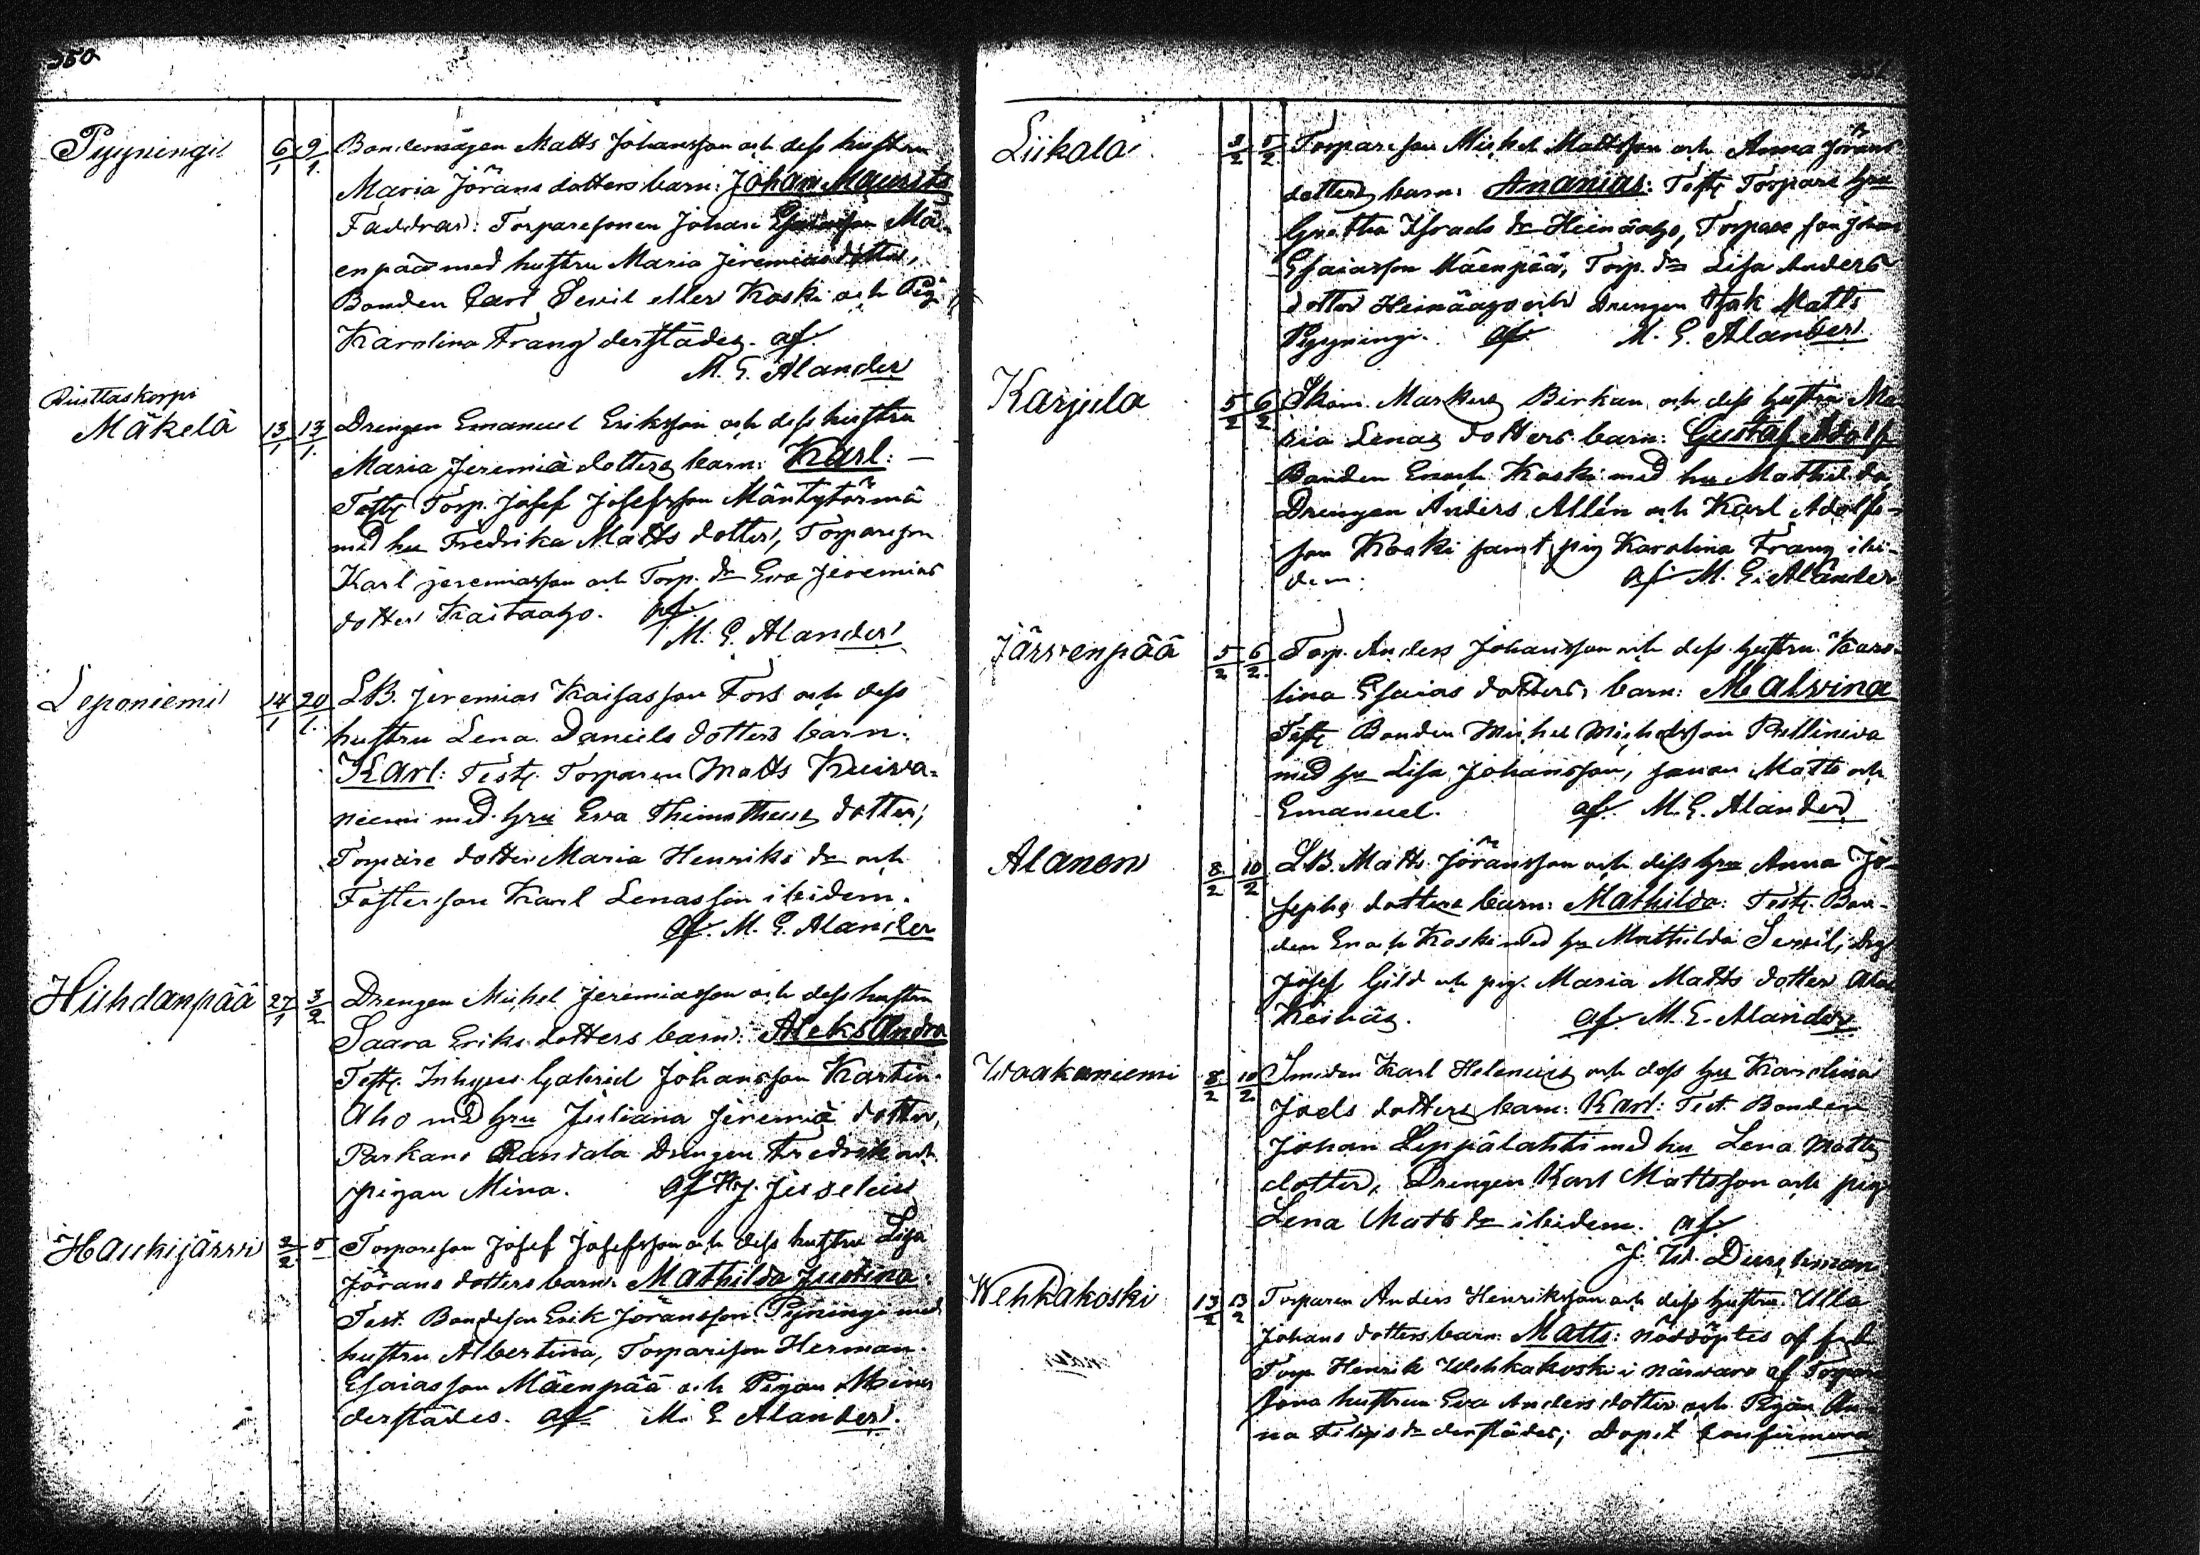 350
Pyyningi 6/1 9/1 Bondemågen Matts Johansson och dess hustru
Maria Jörans dotters barn: Johan Mauritz
Faddrar: Torparesonen Johan Esaiasson Mä-
enpää med hustru Maria Jeremias dotter,
Bonden Carl Sevil eller Koski och Pig
Karolina Frang derstädes. af.
M. E. Alander
Mäkelä 13/1 13/1 Drengen Emanuel Eriksson och dess hustru
Maria Jeremiä dotters barn: Karl: —
Test: Torp. Josef Josefsson Mäntytörmä
med hu Fredrika Matts dotter, Torpareson
Karl Jeremiasson och Torp. dr Eva Jeremias
dotter Kaitaaho. af.
M. E. Alander
Leponiemi 14/1 20/1 LB. Jeremias Kaisasson Fors och dess
hustru Lena Daniels dotters barn:
Karl: Test: Torparen Matts Kuiva-
niemi med hru Eva Thimotheus dotter,
Torpare dotter Maria Henriks dr och
Fosterson Karl Lenasson ibidem.
af. M. E. Alander
Hiihdanpää 27/1 3/2 Drengen Michel Jeremiasson och dess hustru
Saara Eriks dotters barn: Aleksandra
Test: Inhyses Gabriel Johansson Kartin-
Aho med hru Juliana Jeremiä dotter,
Parkano Drengen Fredrik och
pigan Mina. af
Haukijärvi 2/2 5 Torpareson Josef Josefsson och dess hustru Lisa
Jörans dotters barn: Mathilda Justina.
Test. Bondeson Erik Jöransson Pyyningi med
hustru Albertina, Torpareson Herman
Esaiasson Mäenpää och Pigan Mina
derstädes. af M. E Alander.
Liikala 3/2 5/2 Torpareson Michel Mattsson och Anna Jörans
dotters barn: Ananias: Test: Torpare hru
Gretha Israels dr Heinäaho, Torpareson Johan
Esaiasson Mäenpää, Torp. dr Lisa Anders
dotter Heinäaho och Drengen Isak Matts
Pyyningi. af. M. E. Alander
Karjula 5/2 6/2 Skom. Markus Birkan och dess hustru Ma-
ria Lenas dotters barn: Gustaf Adolf
Bonden Enoch Koski med hu Mathilda,
Drengen Anders Allén och Karl Adolfs-
son Koski samt pig Karolina Frang ibi-
dem. af M. E. Alander
Järvenpää 5/2 6/2 Torp. Anders Johansson och dess hustru Karo-
lina Esaias dotters barn: Malvina
Test: Bonden Michel Michelsson
med hu Lisa Johansson, sonen Matts och
Emanuel. af. M. E. Alander
Alanen 8/2 10/2 LB. Matts Jöransson och dess hru Anna Jo-
sephs dotters barn: Mathilda: Test: Bon-
den Enoch Koski med hu Mathilda Sevil, Drg
Josef Gild och pig. Maria Matts dotter
af M. E. Alander
Waakaniemi 8/2 10/2 Smeden Karl Helenius och dess hu Karolina
Joels dotters barn: Karl: Test. Bonden
Johan Leppälahti med hu Lena Matts
dotter, Drengen Karl Mattsson och pig
Lena Matts dr ibidem. af
J. W. Durchman
Wehkakoski 13/2 13/2 Torparen Anders Henriksson och dess hustru Ulla
Johans dotters barn: Matts: Nöddöptes af
Torp. Henrik Wehkakoski i närvaro af Torpare
Jona hustrun Eva Anders dotter och Pigan An-
na Filips dr derstädes; Dopet konfirmera